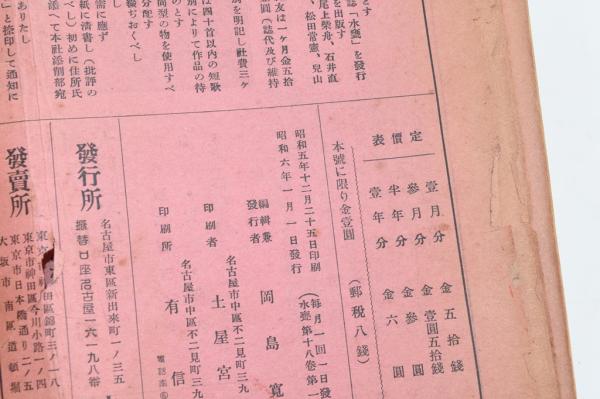 定價表
壹月分 金五拾錢
參月分 金壹圓五拾錢
半年分 金參圓
壹年分 金六圓
本號に限り金壹圓 (郵税八錢)
昭和五年十二月二十五日印刷 (毎月一回一日發
昭和六年一月一日發行 (水甕第十八卷第一
編輯兼發行者 岡島寛
名古屋市中區不二見町三九
印刷者 土屋宮
名古屋市中區不二見町三九
印刷所 有信
電話南
名古屋市東區新出來町一ノ三五
發行所
振替口座名古屋一六一九八番
發賣所
田區錦町三ノ一八
東京市神田區今川小路一ノ四
東京市日本橋通り二ノ五
大坂市南區道頓堀
とす
誌「水甕」を發行
を出版す
尾上柴舟、石井直
、松田常憲、兒山
友は一ヶ月金五拾
圓(誌代及び維持
別を明記し社費三ヶ
は四十首以内の短歌
別によりて作品の待
のとす
同型の物を使用すべ
分配す
綴ぢおくべし
需に應ず
紙に清書し(批評の
べし)初めに住所氏
添へて本社添削部宛
ありたし
」と捺印して通知に